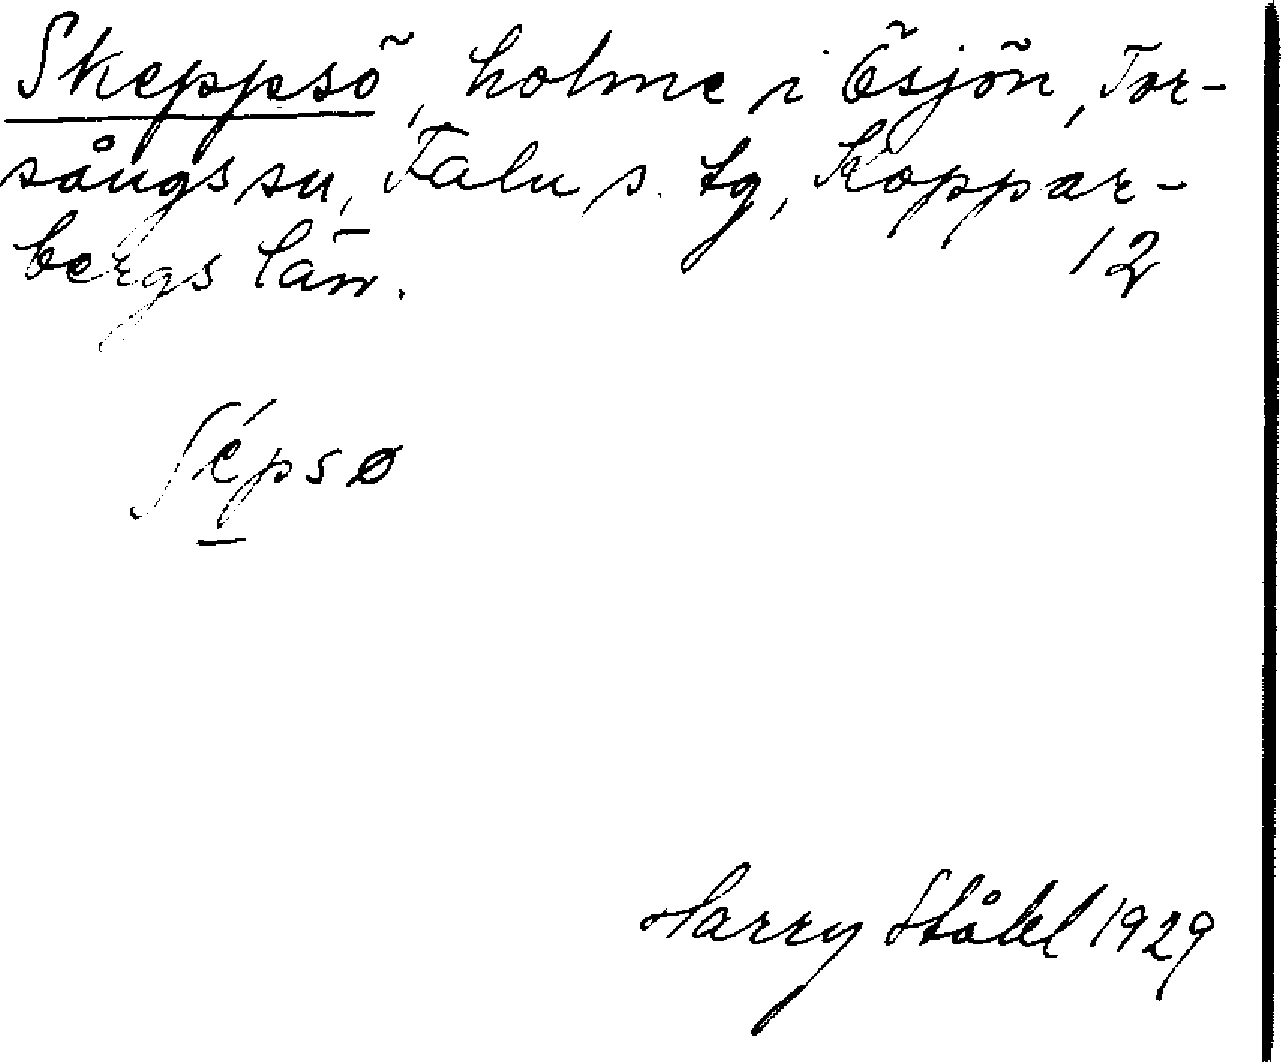 Skeppsö, holme i Ösjön, Tor-
sångs sn, Falu s. tg, Koppar-
bergs län. 12
ʃépsø
Harry Ståhl 1929